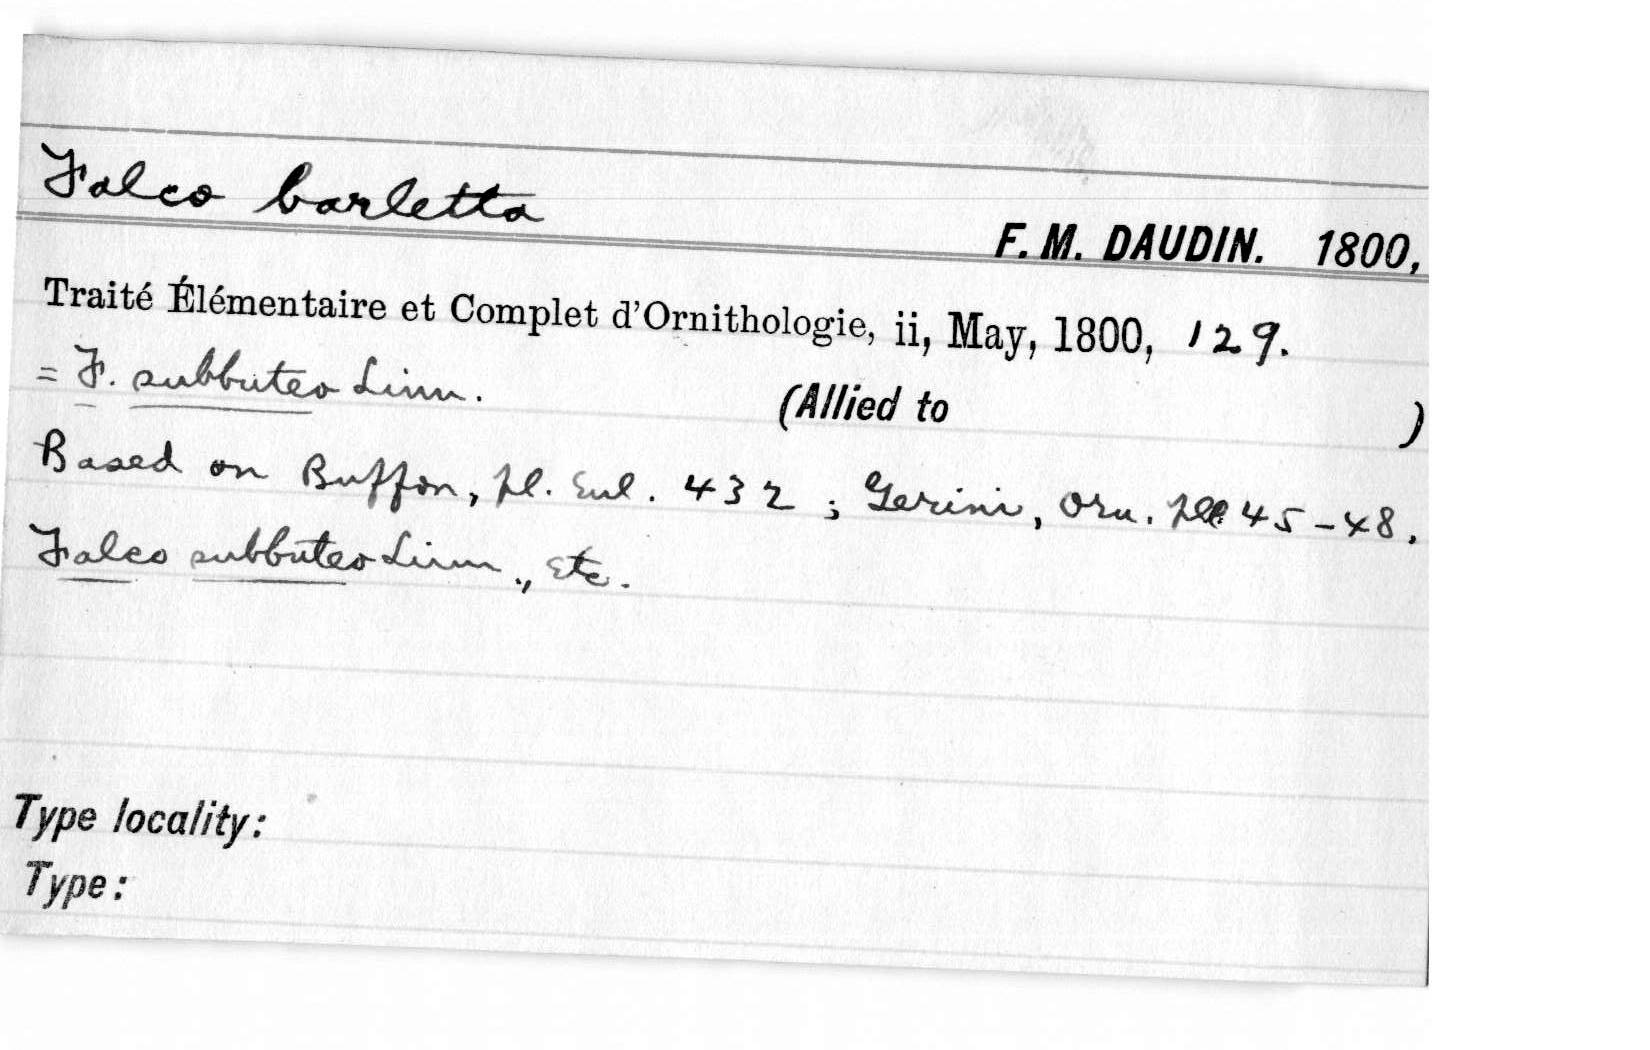 Falco barletta
F. M. DAUDIN. 1800,
Traité Élémentaire et Complet d'Ornithologie, ii, May, 1800, 129.
= F. subbuteo Linn. (Allied to )
Based on Buffon, pl. Enl. 432 ; Gerini, Orn. pll 45-48,
Falco subbuteo Linn., etc.
Type locality:
Type: